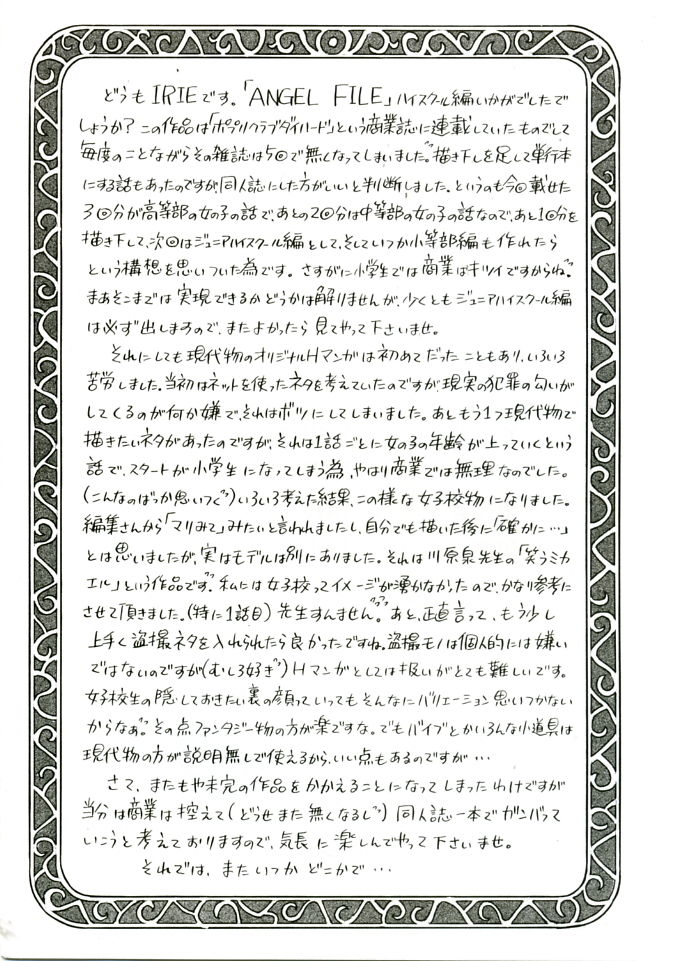 どうもIRIEです。「ANGEL FILE」ハイスクール編いかがでしたで
しょうか？この作品は「ポプリクラブダイハード」という商業誌に連載していたものでして
毎度のことながらその雑誌は5回で無くなってしまいました。描き下しを足して単行本
にする話もあったのですが、同人誌にした方がいいと判断しました。というのも今回載せた
3回分が高等部の女の子の話で、あとの2回分は中等部の女の子の話なので、あと1回分を
描き下して、次回はジュニアハイスクール編として、そしていつか小等部編も作れたら
という構想を思いついた為です。さすがに小学生では商業はキツイですからね。
まあそこまでは実現できるかどうかは解りませんが、少くともジュニアハイスクール編
は必ず出しますので、またよかったら見てやって下さいませ。
それにしても現代物のオリジナルHマンガは初めてだったこともあり、いろいろ
苦労しました。当初はネットを使ったネタを考えていたのですが、現実の犯罪の匂いが
してくるのが何か嫌で、それはボツにしてしまいました。あともう1つ現代物で
描きたいネタがあったのですが、それは1話ごとに女の子の年齢が上っていくという
話で、スタートが小学生になってしまう為、やはり商業では無理なのでした。
（こんなのばっか思いつく）いろいろ考えた結果、この様な女子校物になりました。
編集さんから「マリみて」みたいと言われましたし、自分でも描いた後に「確かに…」
とは思いましたが、実はモデルは別にありました。それは川原泉先生の「笑うミカ
エル」という作品です。私には女子校ってイメージが湧かなかったので、かなり参考に
させて頂きました。（特に1話目）先生すんません。あと、正直言って、もう少し
上手く盗撮ネタを入れられたら良かったですね。盗撮モノは個人的には嫌い
ではないのですが（むしろ好き）Hマンガとしては扱いがとても難しいです。
女子校生の隠しておきたい裏の顔っていってもそんなにバリエーション思いつかない
からなぁ。その点ファンタジー物の方が楽ですな。でもバイブとかいろんな小道具は
現代物の方が説明無しで使えるから、いい点もあるのですが…
さて、またもや未完の作品をかかえることになってしまったわけですが
当分は商業は控えて（どうせまた無くなるし）同人誌一本でガンバって
いこうと考えておりますので、気長に楽しんでやって下さいませ。
それでは、またいつかどこかで…